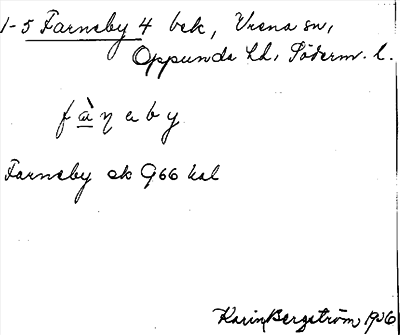 1-5 Farneby 4 bek, Vrena sn,
Oppunda hd, Söderm. l.
fàꞃeby
Farneby ek G66 kal
Karin Bergström 1936